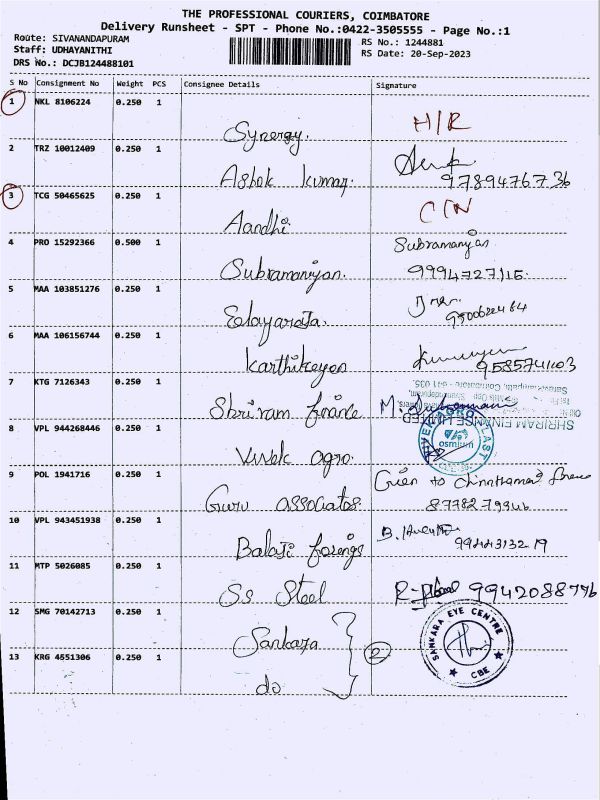 THE PROFESSIONAL COURIERS, COIMBATORE
Delivery Runsheet - SPT - Phone No.:0422-3505555 - Page No.:1
Route: SIVANANDAPURAM
RS No.: 1244881
Staff: UDHAYANITHI
RS Date: 20-Sep-2023
DRS No.: DCJB124488101
S No Consignment No Weight PCS Consignee Details Signature
1 NKL 8106224 0.250 1
Synergy. H/R
2 TRZ 10012409 0.250 1
Ashok kumar. 9789476736
3 TCG 50465625 0.250 1
Aandhi C/N
4 PRO 15292366 0.500 1
Subramaniyan. Subramaniyan
9994727115.
5 MAA 103851276 0.250 1
Elayaraja.
6 MAA 106156744 0.250 1
Karthikeyen 9585741103
7 KTG 7126343 0.250 1
Shriram finance
SHRIRAM FINANCE LIMITED
8 VPL 944268446 0.250 1
Vivek agro.
osmium
9 POL 1941716 0.250 1
Guru associates.
10 VPL 943451938 0.250 1
Balaji forings
11 MTP 5026085 0.250 1
Ss Steel 9942088746
12 SMG 70142713 0.250 1
Sankara
2
SANKARA EYE CENTRE
CBE
13 KRG 4551306 0.250 1
do